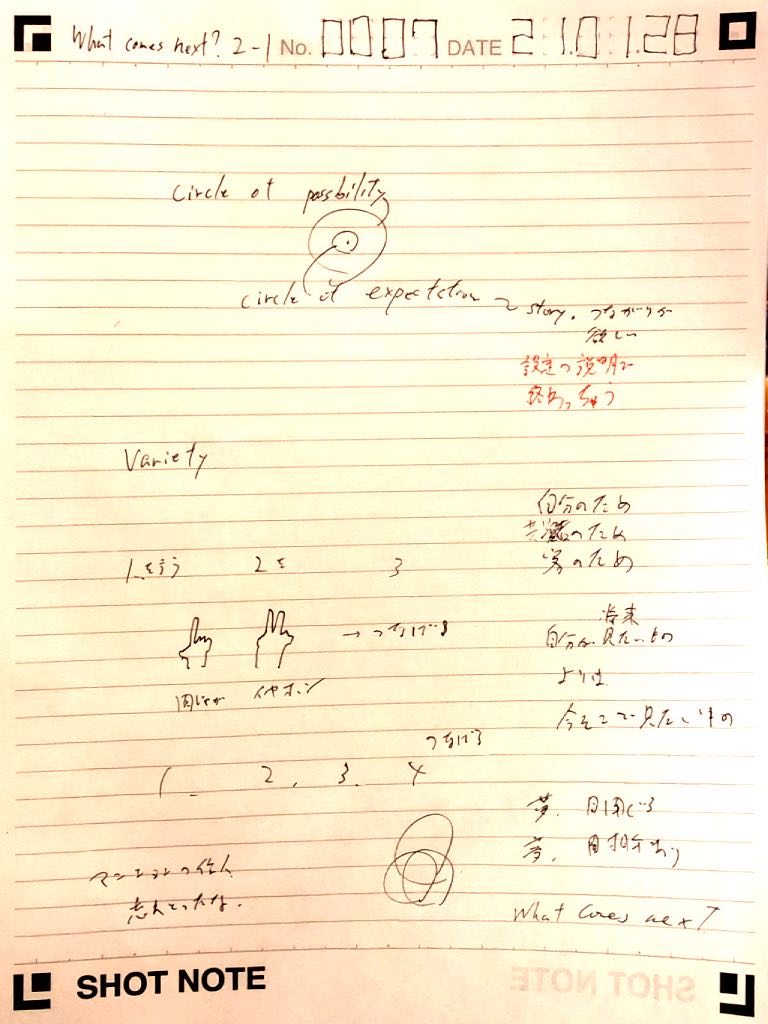 What comes next? 2-1 No. 0007 DATE 21.01.28
circle of possibility
circle of expectation ~ story. つながりが
欲しい
設定の説明で
終わっちゃう
Variety
自分のため
共演者のため
客のため
1を言う 2を 3
→つなげる
将来
自分が見たいもの
よりは
今そこで見たいもの
つなげる
1. 2. 3. 4
夢. 目閉じる
夢. 目
マンションの住人
What comes next
SHOT NOTE
SHOT NOTE